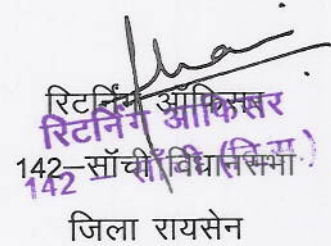 रिटर्निंग ऑफिसर
रिटर्निंग ऑफिसर
142–सॉची विधानसभा
142 – साँची (वि.स.)
जिला रायसेन